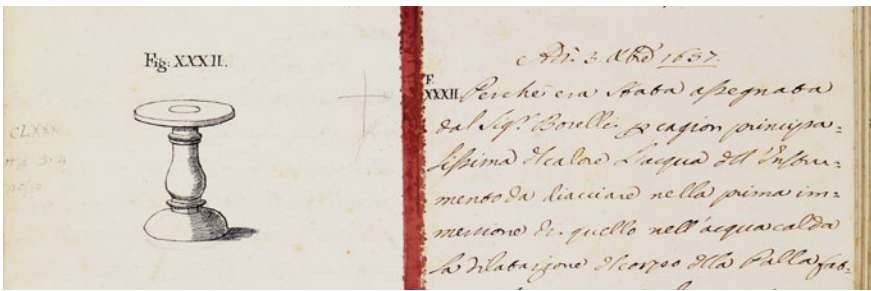 Fig: XXXII.
CLXXX
Adi: 3. Xbre 1657.
F.
XXXII. Perche era stata assegnata
dal Sigr. Borelli p cagion principa=
lissima
nel calore l'acqua dell' Instru=
mento da diacciare nella prima im=
mersione di quello nell'acqua calda
la dilatazione del corpo della Palla fab=